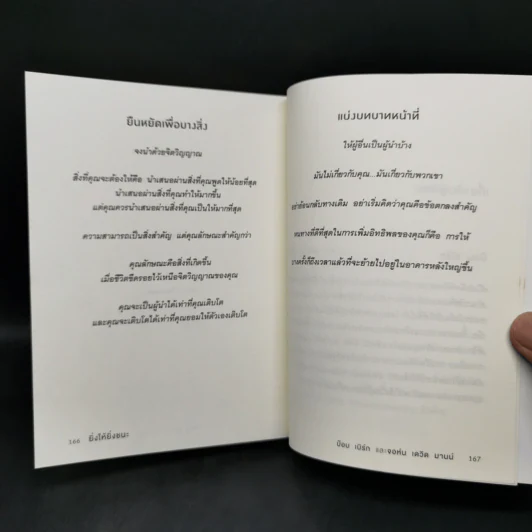 ยืนหยัดเพื่อบางสิ่ง
จงนำด้วยจิตวิญญาณ
สิ่งที่คุณจะต้องให้คือ นำเสนอผ่านสิ่งที่คุณพูดให้น้อยที่สุด
นำเสนอผ่านสิ่งที่คุณทำให้มากขึ้น
แต่คุณควรนำเสนอผ่านสิ่งที่คุณเป็นให้มากที่สุด
ความสามารถเป็นสิ่งสำคัญ แต่คุณลักษณะสำคัญกว่า
คุณลักษณะคือสิ่งที่เกิดขึ้น
เมื่อชีวิตขีดรอยไว้เหนือจิตวิญญาณของคุณ
คุณจะเป็นผู้นำได้เท่าที่คุณเติบโต
และคุณจะเติบโตได้เท่าที่คุณยอมให้ตัวเองเติบโต
166 ยิ่งให้ยิ่งชนะ
แบ่งบทบาทหน้าที่
ให้ผู้อื่นเป็นผู้นำบ้าง
มันไม่เกี่ยวกับคุณ...มันเกี่ยวกับพวกเขา
อย่าย้อนกลับทางเดิม อย่าเริ่มคิดว่าคุณคือข้อตกลงสำคัญ
หนทางที่ดีที่สุดในการเพิ่มอิทธิพลของคุณก็คือ การให้
บางครั้งก็ถึงเวลาแล้วที่จะย้ายไปอยู่ในอาคารหลังใหญ่ขึ้น
บ๊อบ เบิร์ก และจอห์น เดวิด มานน์ 167